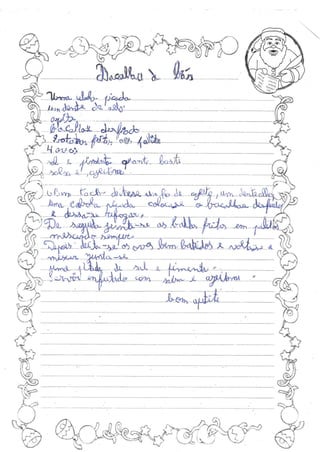 Bacalhau à Brás
Uma cebola picada
um dente de alho
azeite
bacalhau desfiado
batatas fritas em palito
4 ovos
sal e pimenta quanto baste
salsa e azeitona
Num tacho deita-se um fio de azeite, um dente alho
uma cebola picada coloca-se o bacalhau desfiado
e deixa-se refogar.
De seguida junta-se as batatas fritas em palitos
mexendo sempre.
Depois deita-se os ovos bem batidos e volta-se a
mexer junta-se
uma pitada de sal e pimenta.
Servir enfeitado com salsa e azeitonas.
bom apetite